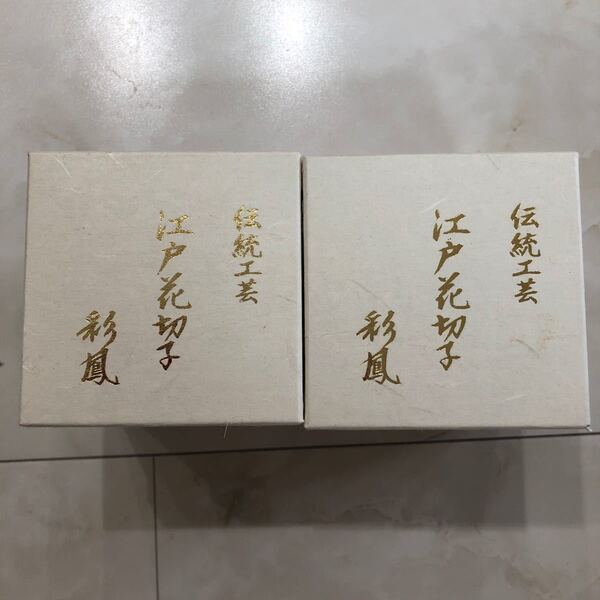 伝統工芸
江戸花切子
彩鳳
伝統工芸
江戸花切子
彩鳳